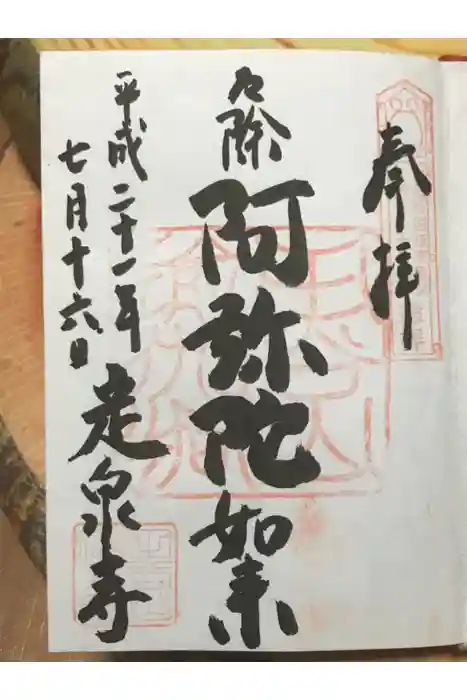 奉拝
厄除
阿弥陀如来
平成二十一年
七月十六日
走泉寺